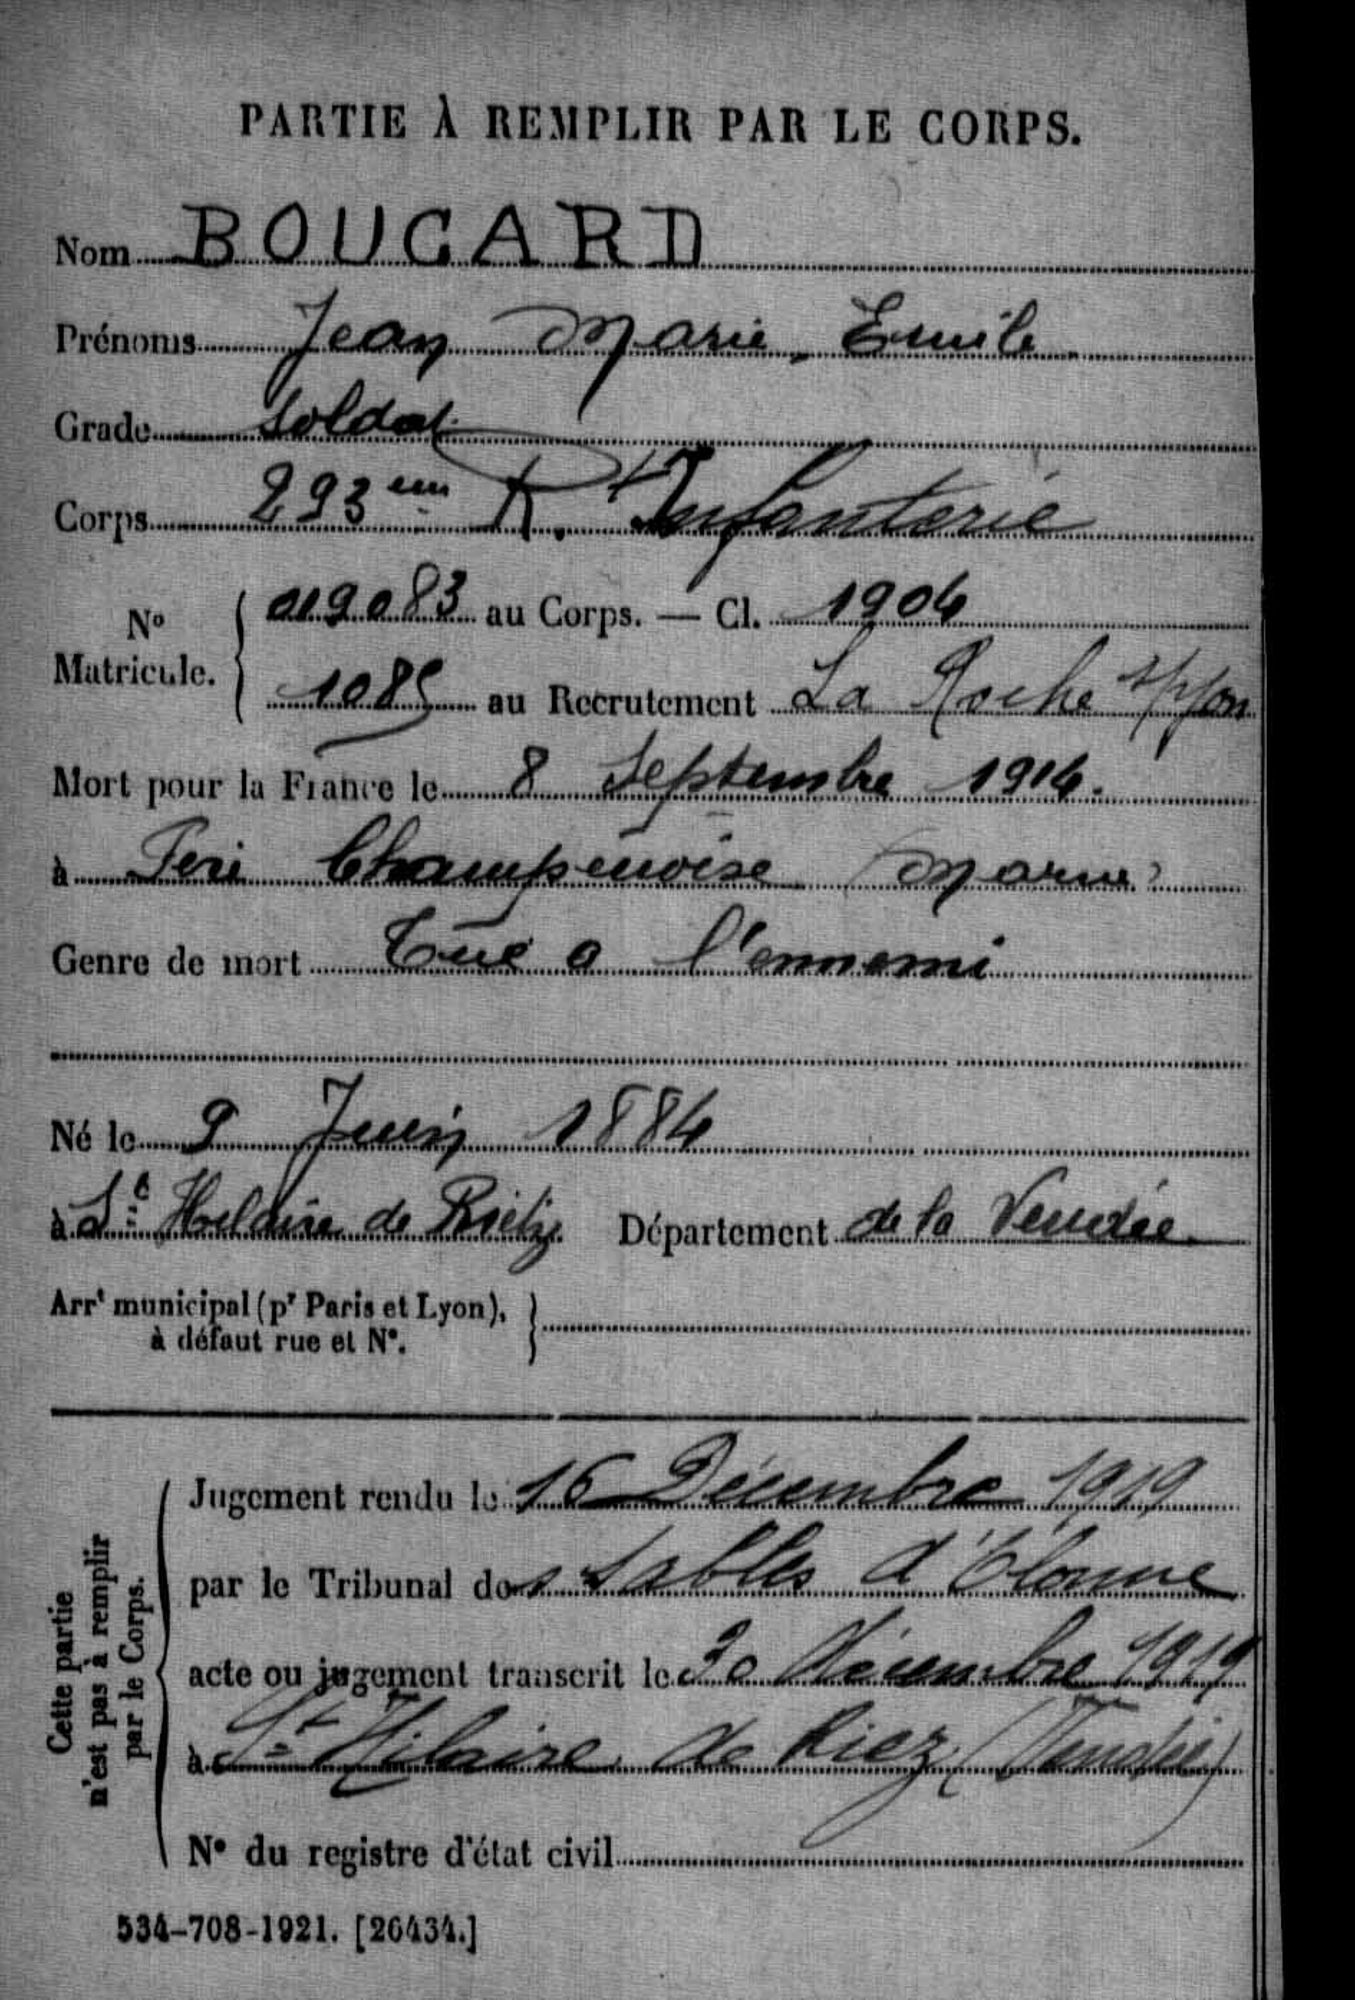 PARTIE À REMPLIR PAR LE CORPS.
Nom BOUCARD
Prénoms Jean Marie, Emile
Grade Soldat
Corps 293eme R.t Infanterie
No Matricule. { 019083 au Corps. — Cl. 1904
1085 au Recrutement La Roche s/Yon
Mort pour la France le 8 Septembre 1914.
à Feri Champenoise (Marne)
Genre de mort Tué a l'ennemi
Né le 9 Juin 1884
à St Helaire de Rietz Département de la Vendée
Arrt municipal (pr Paris et Lyon), à défaut rue et No. }
Cette partie n'est pas à remplir par le Corps.
Jugement rendu le 16 Décembre 1919
par le Tribunal des Sables d'Olonne
acte ou jugement transcrit le 30 décembre 1919
à St Hilaire de Riez (Vendée)
No du registre d'état civil
534-708-1921. [26434.]